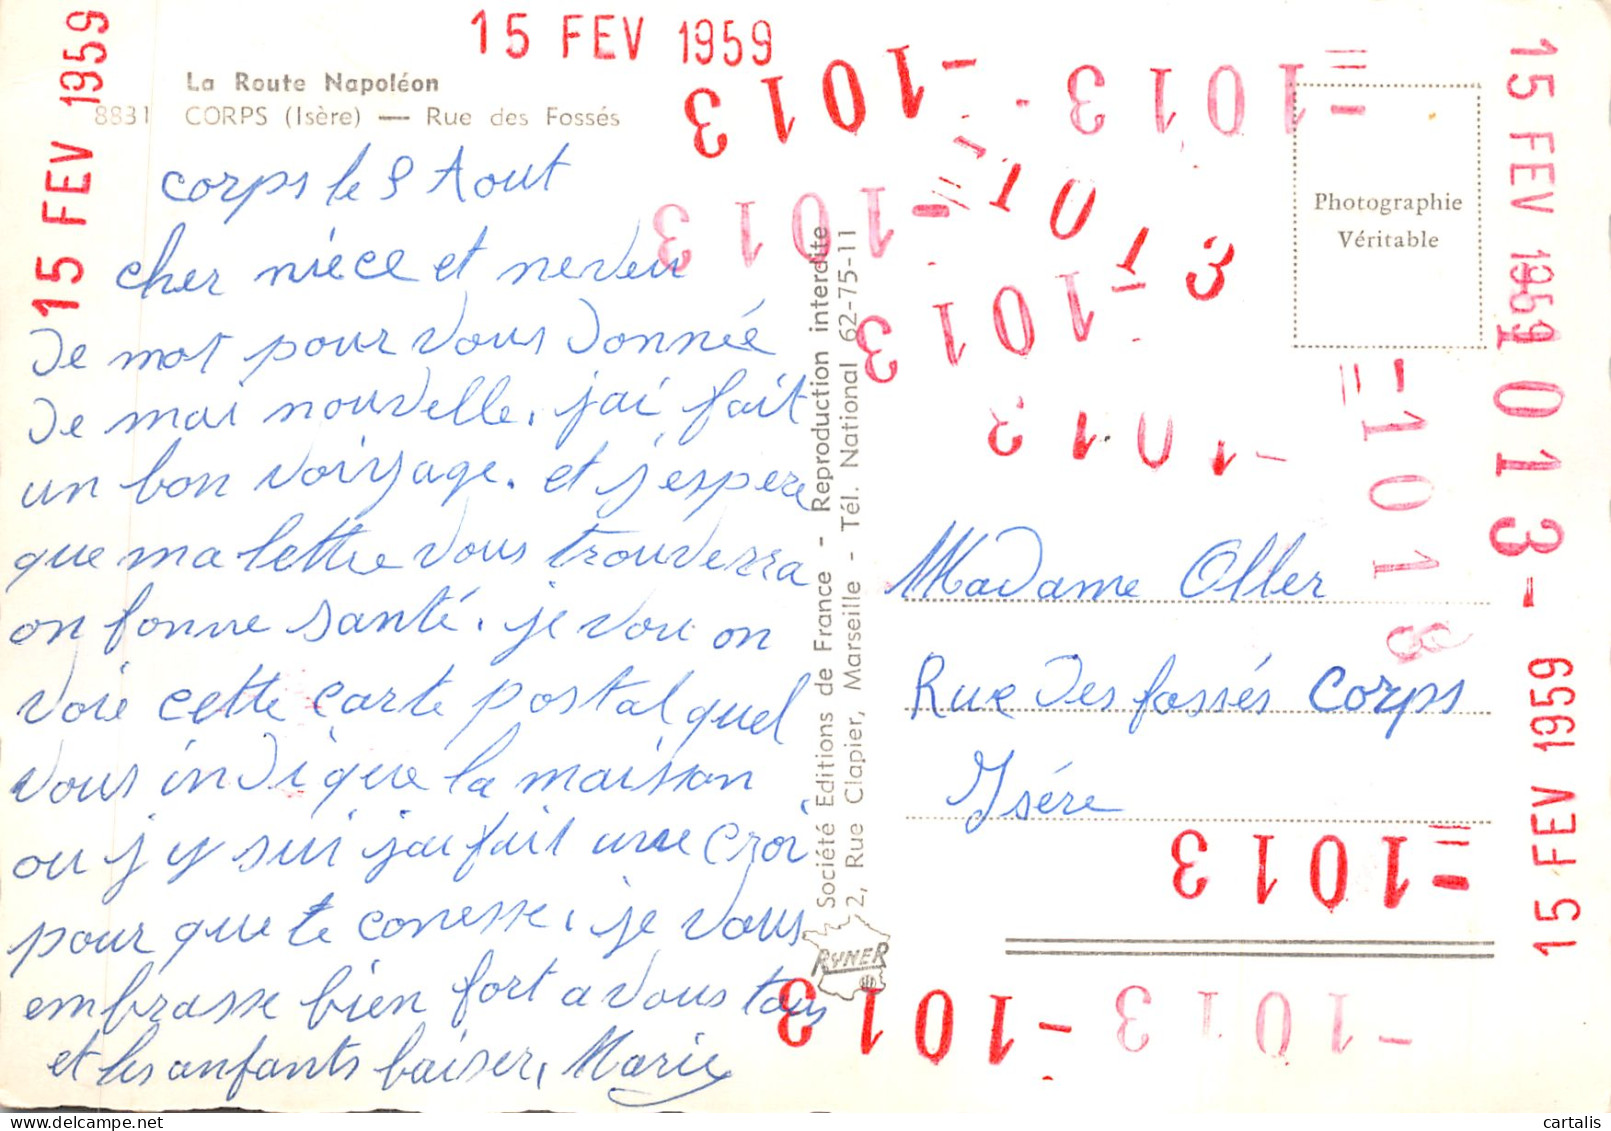 15 FEV 1959
15 FEV 1959
La Route Napoléon
8831 CORPS (Isère) — Rue des Fossés
corps le 9 Aout
cher nièce et neveu
De mot pour vous donnée
De mai nouvelle, j'ai fait
un bon voiyage. et j'espere
que ma lettre vous trouverra
on bonne santé. je vou on
voie cette carte postal quel
vous indique la maison
ou j y sui j'ai fait une croi
pour que te conesse, je vous
embrasse bien fort a vous tous
et les anfants baiser, Marie
Société Editions de France - Reproduction interdite
2, Rue Clapier, Marseille - Tél. National 62-75-11
RYNER
Photographie
Véritable
Madame Oller
Rue Des fossés Corps
Isére
-1013
-1013
-1013
-1013
-1013
-1013
-1013
-1013
-1013
-1013
-1013
15 FEV 1959
1013-
15 FEV 1959
cartalis